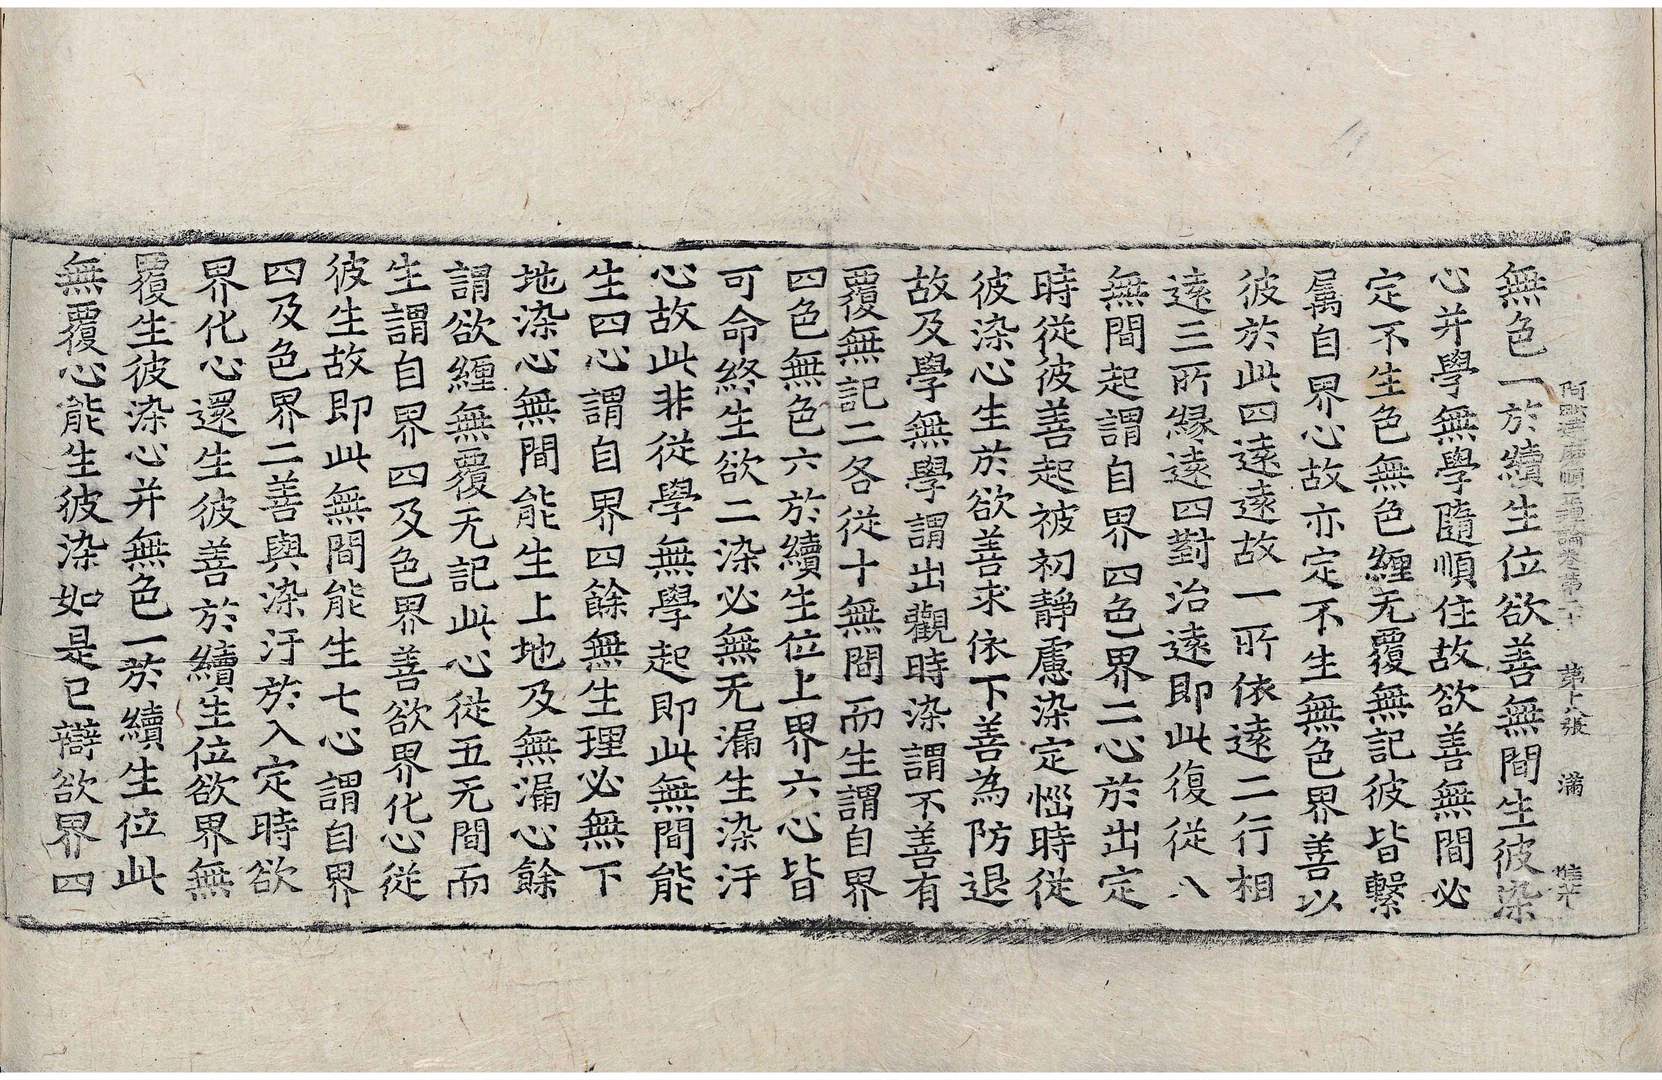 阿毗達磨順正理論卷第二十 第十六張 滿
無色一於續生位欲善無間生彼染
心并學無學隨順住故欲善無間必
定不生色無色纏无覆無記彼皆繫
属自界心故亦定不生無色界善以
彼於此四遠遠故一所依遠二行相
遠三所緣遠四對治遠即此復從八
無間起謂自界四色界二心於出定
時從彼善起被初靜慮染定惱時從
彼染心生於欲善求依下善為防退
故及學無學謂出觀時染謂不善有
覆無記二各從十無間而生謂自界
四色無色六於續生位上界六心皆
可命終生欲二染必無无漏生染汙
心故此非從學無學起即此無間能
生四心謂自界四餘無生理必無下
地染心無間能生上地及無漏心餘
謂欲纏無覆无記此心從五无間而
生謂自界四及色界善欲界化心從
彼生故即此無間能生七心謂自界
四及色界二善與染汙於入定時欲
界化心還生彼善於續生位欲界無
覆生彼染心并無色一於續生位此
無覆心能生彼染如是已辯欲界四